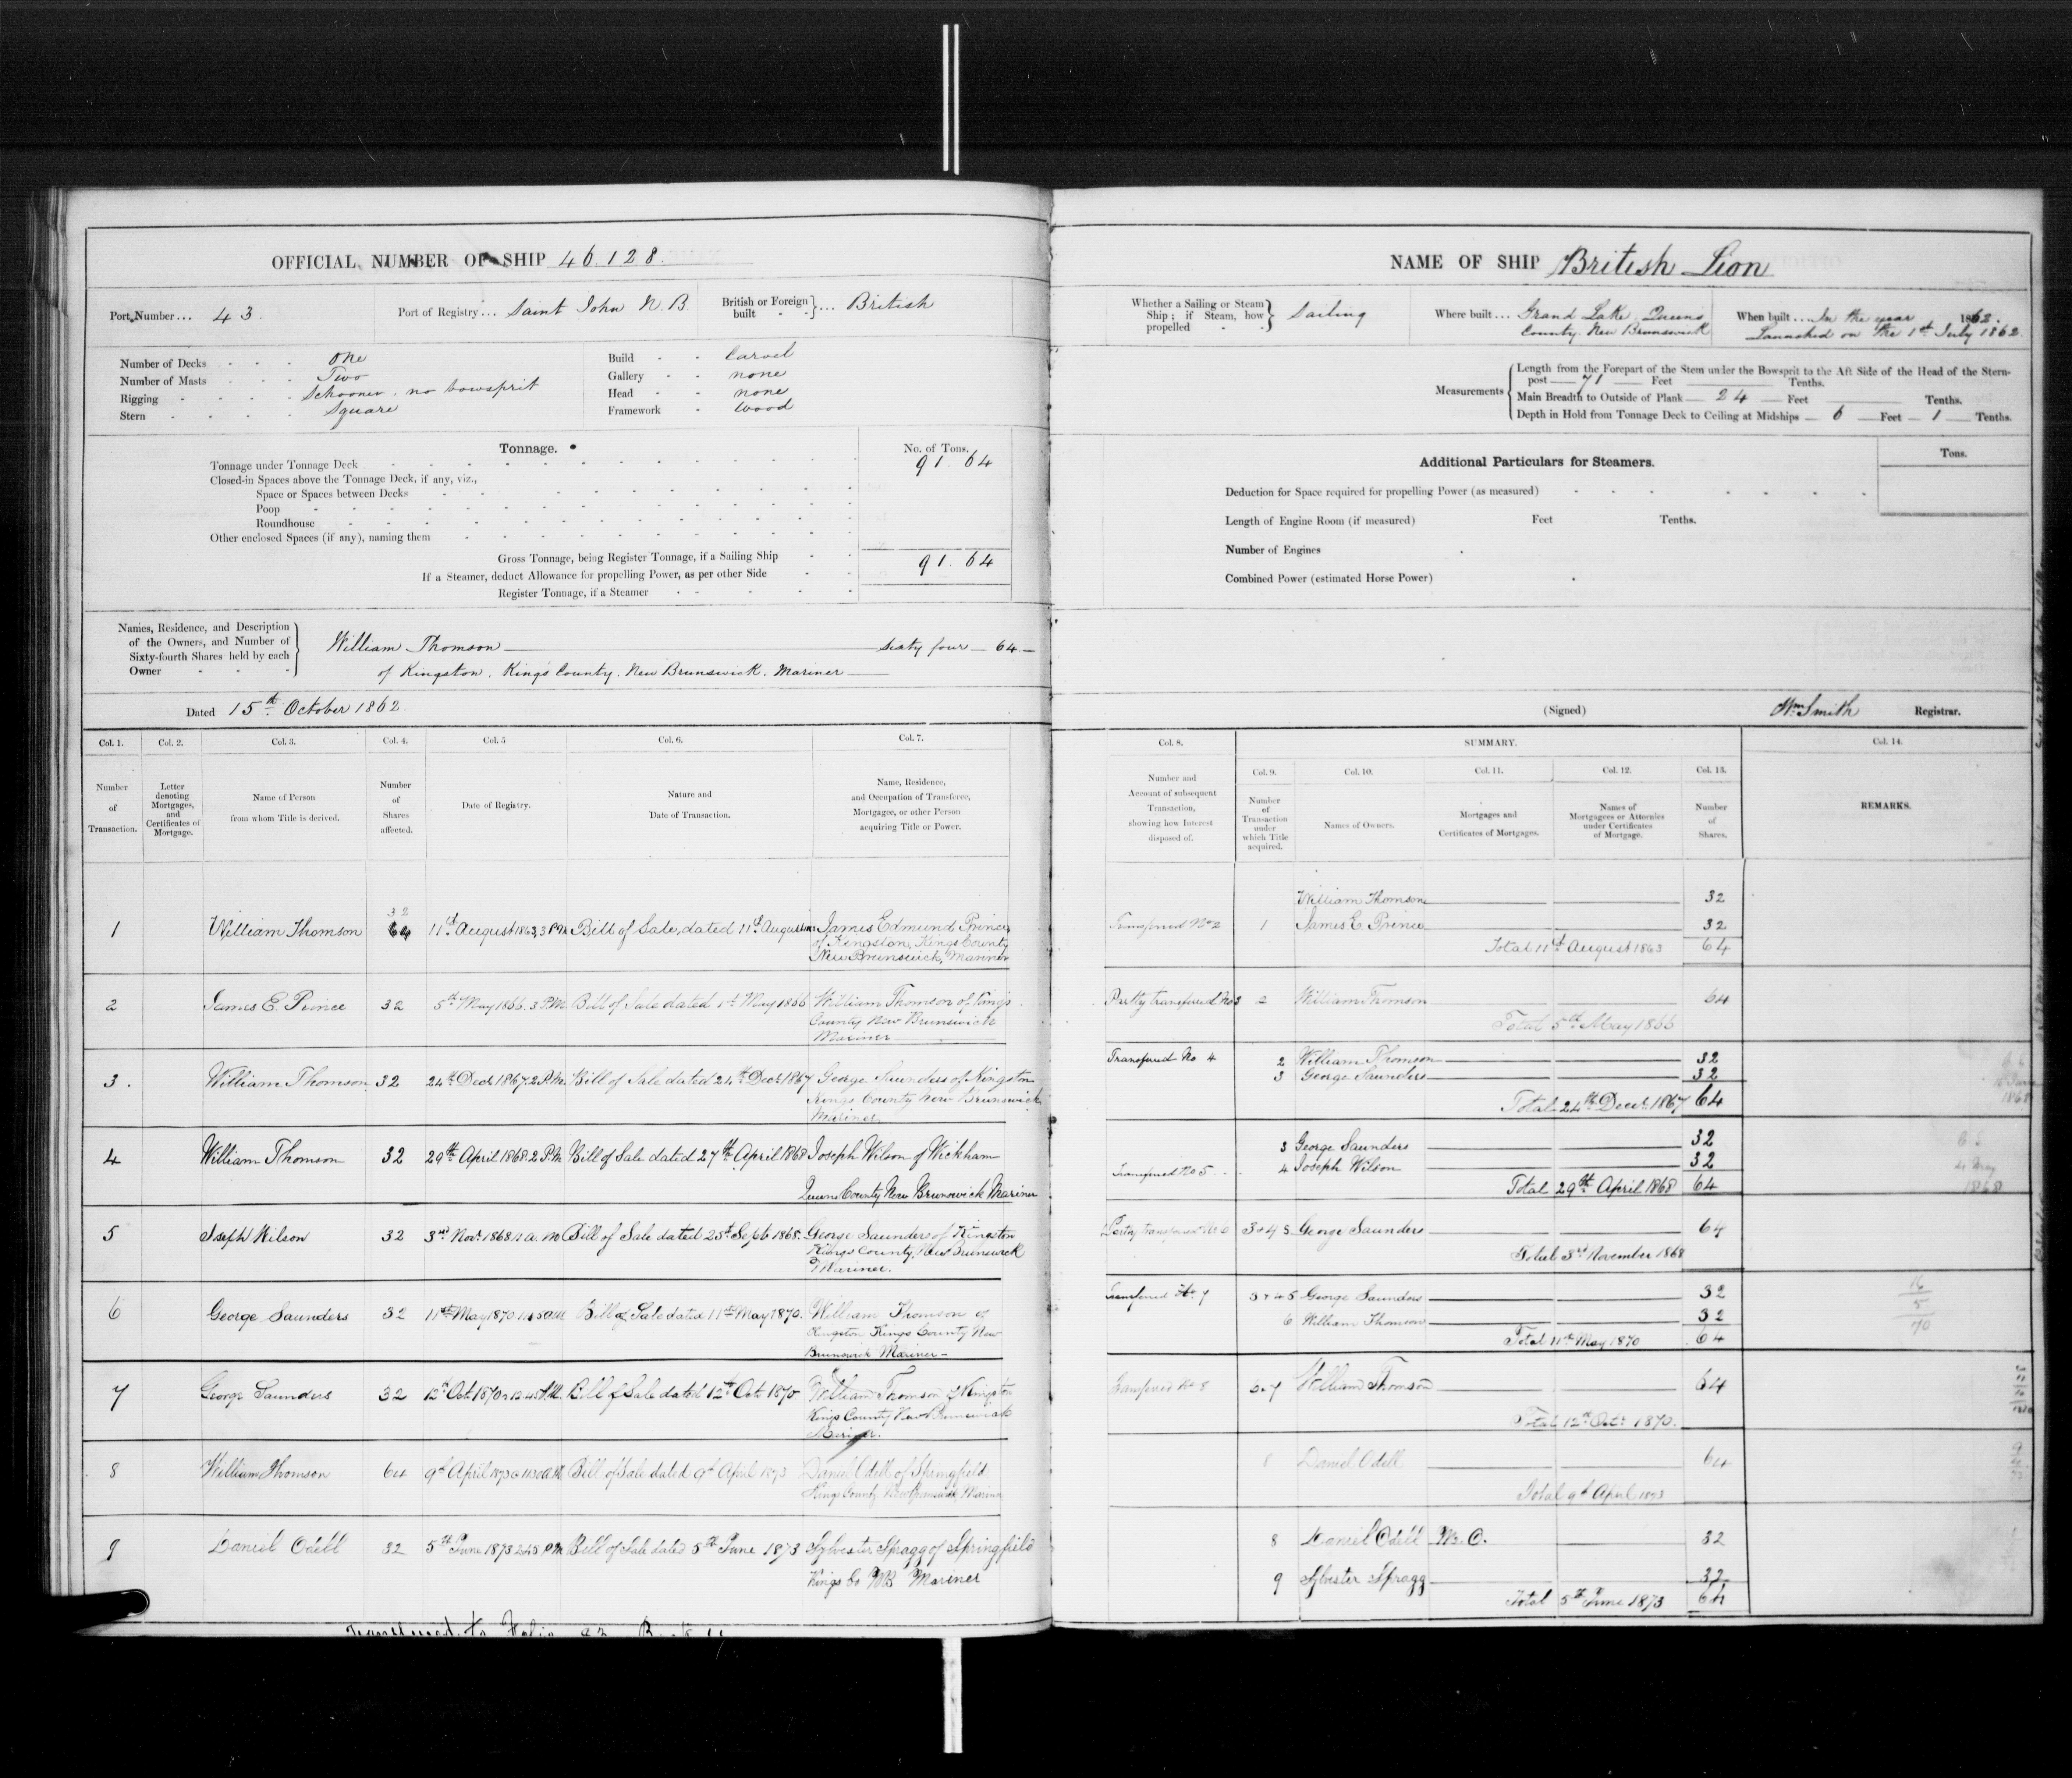 OFFICIAL NUMBER OF SHIP 46.128.
Port Number... 43.
Port of Registry... Saint John N.B.
British or Foreign built } ... British
Number of Decks - - - One
Number of Masts - - - Two
Rigging - - - - Schooner, no bowsprit
Stern - - - - Square
Build - - Carvel
Gallery - - none
Head - - none
Framework - Wood
Tonnage.
No. of Tons.
Tonnage under Tonnage Deck 91.64
Closed-in Spaces above the Tonnage Deck, if any, viz.,
Space or Spaces between Decks
Poop
Roundhouse
Other enclosed Spaces (if any), naming them
Gross Tonnage, being Register Tonnage, if a Sailing Ship 91.64
If a Steamer, deduct Allowance for propelling Power, as per other Side
Register Tonnage, if a Steamer
Names, Residence, and Description
of the Owners, and Number of
Sixty-fourth Shares held by each
Owner
William Thomson — Sixty four — 64 —
of Kingston, King's County, New Brunswick, Mariner —
Dated 15th October 1862.
Col. 1. Col. 2. Col. 3. Col. 4. Col. 5 Col. 6. Col. 7.
Number of Transaction.
Letter denoting Mortgages, and Certificates of Mortgage.
Name of Person from whom Title is derived.
Number of Shares affected.
Date of Registry.
Nature and Date of Transaction.
Name, Residence, and Occupation of Transferee, Mortgagee, or other Person acquiring Title or Power.
32
1 William Thomson 64 11th August 1863, 3 P.M. Bill of Sale, dated 11th August James Edmund Prince
of Kingston, Kings County
New Brunswick, Mariner
2 James E. Prince 32 5th May 1866. 3 P.M. Bill of Sale dated 1st May 1866 William Thomson of Kings
County New Brunswick
Mariner
3. William Thomson 32 24th Decr 1867. 2 P.M. Bill of Sale dated 24th Decr 1867 George Saunders of Kingston
Kings County New Brunswick
Mariner
4 William Thomson 32 29th April 1868. 2 P.M. Bill of Sale dated 27th April 1868 Joseph Wilson of Wickham
Queens County New Brunswick Mariner
5 Joseph Wilson 32 3rd Novr. 1868 11 a.m Bill of Sale dated 25th Sept 1868. George Saunders of Kingston
Kings County, New Brunswick
Mariner.
6 George Saunders 32 11th May 1870 11.45 a.m Bill of Sale dated 11th May 1870. William Thomson of
Kingston Kings County New
Brunswick Mariner —
7 George Saunders 32 12th Oct. 1870 12.45 P.M. Bill of Sale dated 12th Octr 1870 William Thomson of Kingston
Kings County New Brunswick
Mariner.
8 William Thomson 64 9th April 1873 @ 11.30 A.M. Bill of Sale dated 9th April 1873 Daniel Odell of Springfield
Kings County New Brunswick, Mariner
9 Daniel Odell 32 5th June 1873 2.45 P.M. Bill of Sale dated 5th June 1873 Sylvester Spragg of Springfield
Kings Co NB Mariner
NAME OF SHIP British Lion
Whether a Sailing or Steam Ship; if Steam, how propelled } Sailing
Where built ... Grand Lake, Queens
County, New Brunswick
When built ... In the year 1862.
Launched on the 1st July 1862.
Measurements
Length from the Forepart of the Stem under the Bowsprit to the Aft Side of the Head of the Stern-
post — 71 — Feet — Tenths.
Main Breadth to Outside of Plank — 24 — Feet — Tenths.
Depth in Hold from Tonnage Deck to Ceiling at Midships — 6 — Feet — 1 — Tenths.
Additional Particulars for Steamers.
Tons.
Deduction for Space required for propelling Power (as measured)
Length of Engine Room (if measured) Feet Tenths.
Number of Engines
Combined Power (estimated Horse Power)
(Signed) Wm Smith Registrar.
Col. 8. SUMMARY. Col. 14.
Col. 9. Col. 10. Col. 11. Col. 12. Col. 13.
Number and Account of subsequent Transaction, showing how Interest disposed of.
Number of Transaction under which Title acquired.
Names of Owners.
Mortgages and Certificates of Mortgages.
Names of Mortgagees or Attornies under Certificates of Mortgage.
Number of Shares.
REMARKS.
William Thomson 32
Transferred No 2 1 James E. Prince 32
Total 11th August 1863 64
Partly transferred No 3 2 William Thomson 64
Total 5th May 1866
Transferred No 4 2 William Thomson 32
3 George Saunders 32
Total 24th Decr 1867 64
3 George Saunders 32
Transferred No 5 4 Joseph Wilson 32
Total 29th April 1868 64
Partly transferred No 6 3 & 4 5 George Saunders 64
Total 3rd November 1868
Transferred No 7 3 & 4 5 George Saunders 32
6 William Thomson 32
Total 11th May 1870 64
Transferred No 8 6.7 William Thomson 64
Total 12th Octr 1870.
8 Daniel Odell 64
Total 9th April 1873
8 Daniel Odell M.C. 32
9 Sylvester Spragg 32
Total 5th June 1873 64